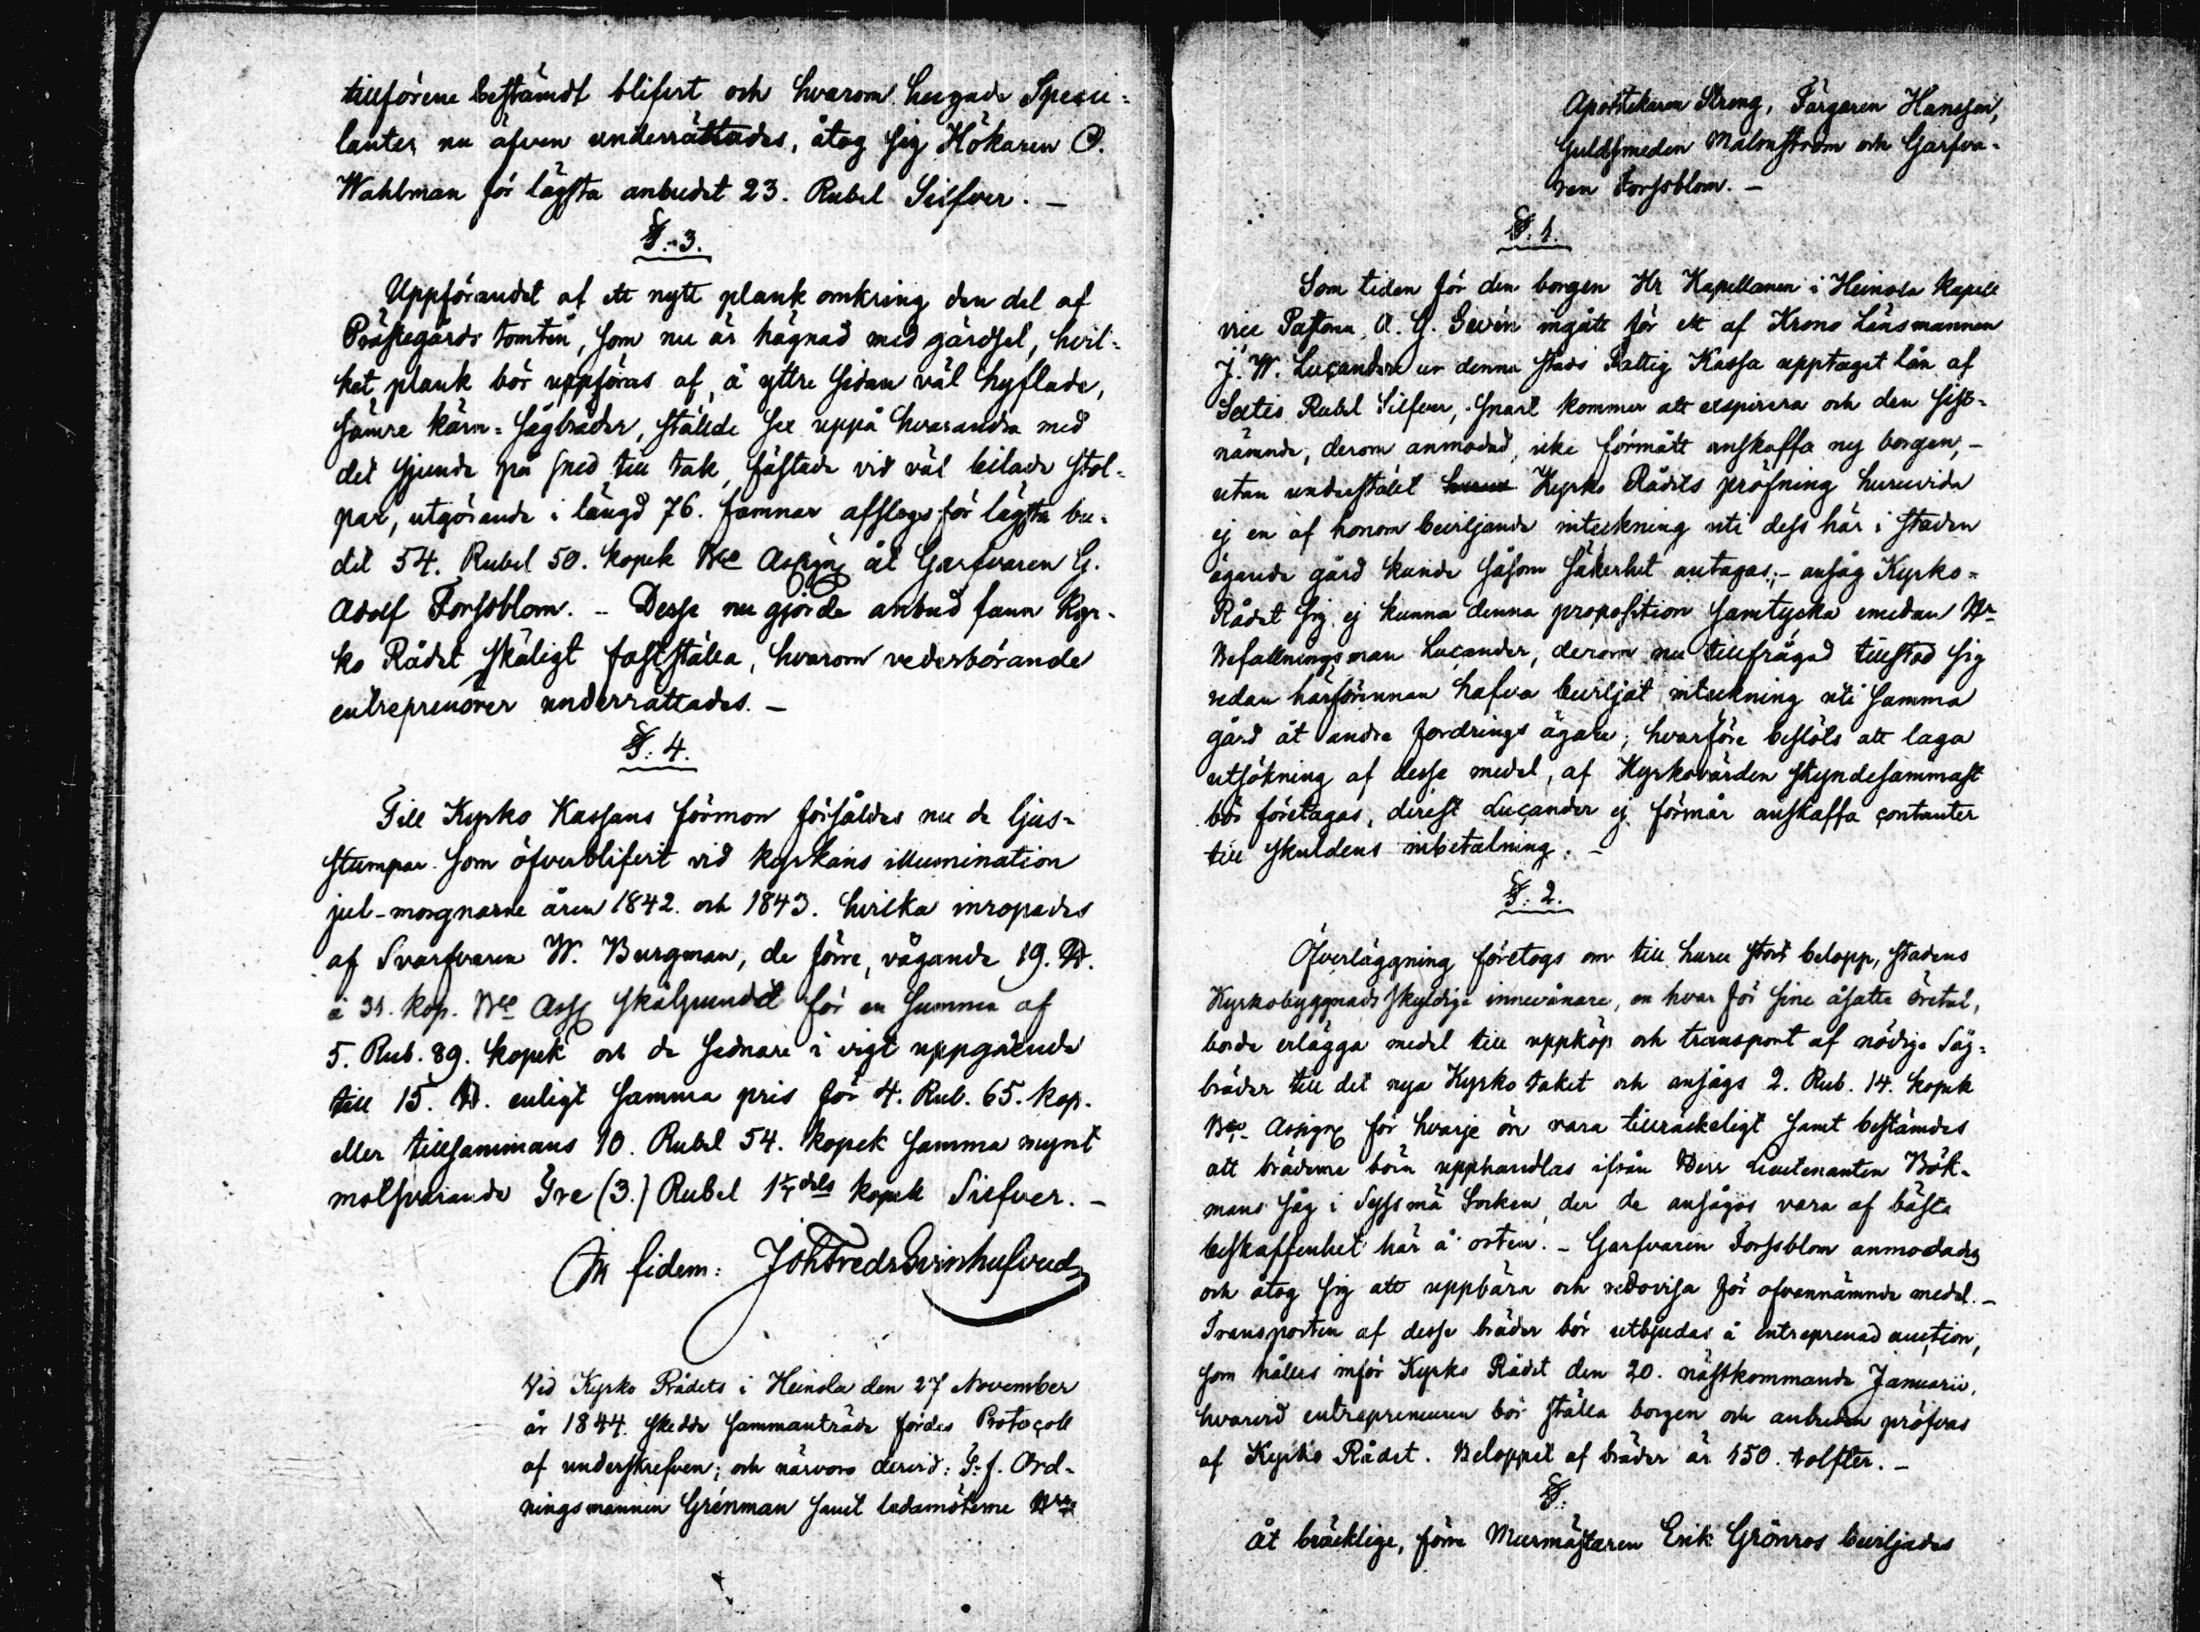 tillförene bestämdt blifvit och hvarom hugade Specu-
lanter nu äfven underrättades, åtog sig Hökaren C.
Wahlman för lägsta anbudet 23. Rubel Silfver. —
§. 3.
Uppförandet af ett nytt plank omkring den del af
Prästegårds tomten, som nu är hägnad med gärdsel, hvil-
ket plank bör uppföras af, å yttre sidan väl hyflade,
sämre kärn-sågbräder, stälde sex uppå hvarandra med
det sjunde på sned till tak, fästade vid väl bilade stol-
par, utgörande i längd 76. famnar afslogs för lägsta bu-
det 54. Rubel 50. kopek Bco Assign åt Garfvaren G.
Adolf Forssblom. — Desse nu gjorde anbud fann Kyr-
ko Rådet skäligt fastställa, hvarom vederbörande
entreprenörer underrättades. —
§. 4.
Till Kyrko Kassans förmon försåldes nu de ljus-
stumpar som öfverblifvit vid kyrkans illumination
jul-morgnarne åren 1842. och 1843. hvilka inropades
af Svarfvaren W. Burgman, de förre, vägande 19. ℔.
à 31. kop. Bco Ass skålpundet för en summa af
5. Rub. 89. kopek och de sednare i vigt uppgående
till 15. ℔. enligt samma pris för 4. Rub. 65. kop.
eller tillsammans 10. Rubel 54. kopek samma mynt
motsvarande Tre (3.) Rubel kopek Silfver. —
In fidem: Joh Fredr Svinhufvud
Vid Kyrko Rådets i Heinola den 27 November
år 1844. skedde sammanträde fördes Protocoll
af underskrefven; och närvoro dervid: T. f. Ord-
ningsmannen Grénman samt ledamöterne Hrr
Apothekaren Streng, Färgaren Hanssen,
Guldsmeden Malmström och Garfva-
ren Forssblom. —
§. 1.
Som tiden för den borgen Hr Kapellanen i Heinola kapell
vice Pastorn A. G. ingått för ett af Krono Länsmannen
J. W. Lucander ur denna stads Fattig Kassa upptaget lån af
Sextio Rubel Silfver, snart kommer att exspirera och den sist-
nämnde, derom anmodad, icke förmått anskaffa ny borgen, —
utan understält Kyrko Rådets pröfning huruvida
ej en af honom beviljande inteckning uti dess här i staden
ägande gård kunde såsom säkerhet antagas; — ansåg Kyrko-
Rådet sig ej kunna denna proposition samtycka emedan Hr
Befallningsman Lucander, derom nu tillfrågad tillstod sig
redan härförinnan hafva beviljat inteckning uti samma
gård åt andra fordrings ägare; hvarföre beslöts att laga
utsökning af desse medel, af Kyrkovärden skyndesammast
bör företagas, derest Lucander ej förmår anskaffa contanter
till skuldens inbetalning. —
§. 2.
Öfverläggning företogs om till huru stort belopp, stadens
Kyrkobyggnads skyldige innevånare, en hvar för sine åsatte öretal,
borde erlägga medel till uppköp och transport af nödige Såg-
bräder till det nya Kyrko taket och ansågs 2. Rub. 14. kopek
Bco Assign för hvarje öre vara tillräckeligt samt bestämdes
att bräderne böra upphandlas ifrån Herr Lieutenanten Bök-
mans såg i Sysmä Socken, der de ansågos vara af bästa
beskaffenhet här å orten. — Garfvaren Forssblom anmodades
och åtog sig att uppbära och redovisa för ofvannämnde medel. —
Transporten af desse bräder bör utbjudas å entreprenad auction,
som hålles inför Kyrko Rådet den 20. nästkommande Januarii,
hvarvid entrepreneuren bör ställa borgen och anbuden pröfvas
af Kyrko Rådet. Beloppet af bräder är 150. tolfter. —
§.
Åt bräcklige, förre Murmästaren Erik Grönros beviljades